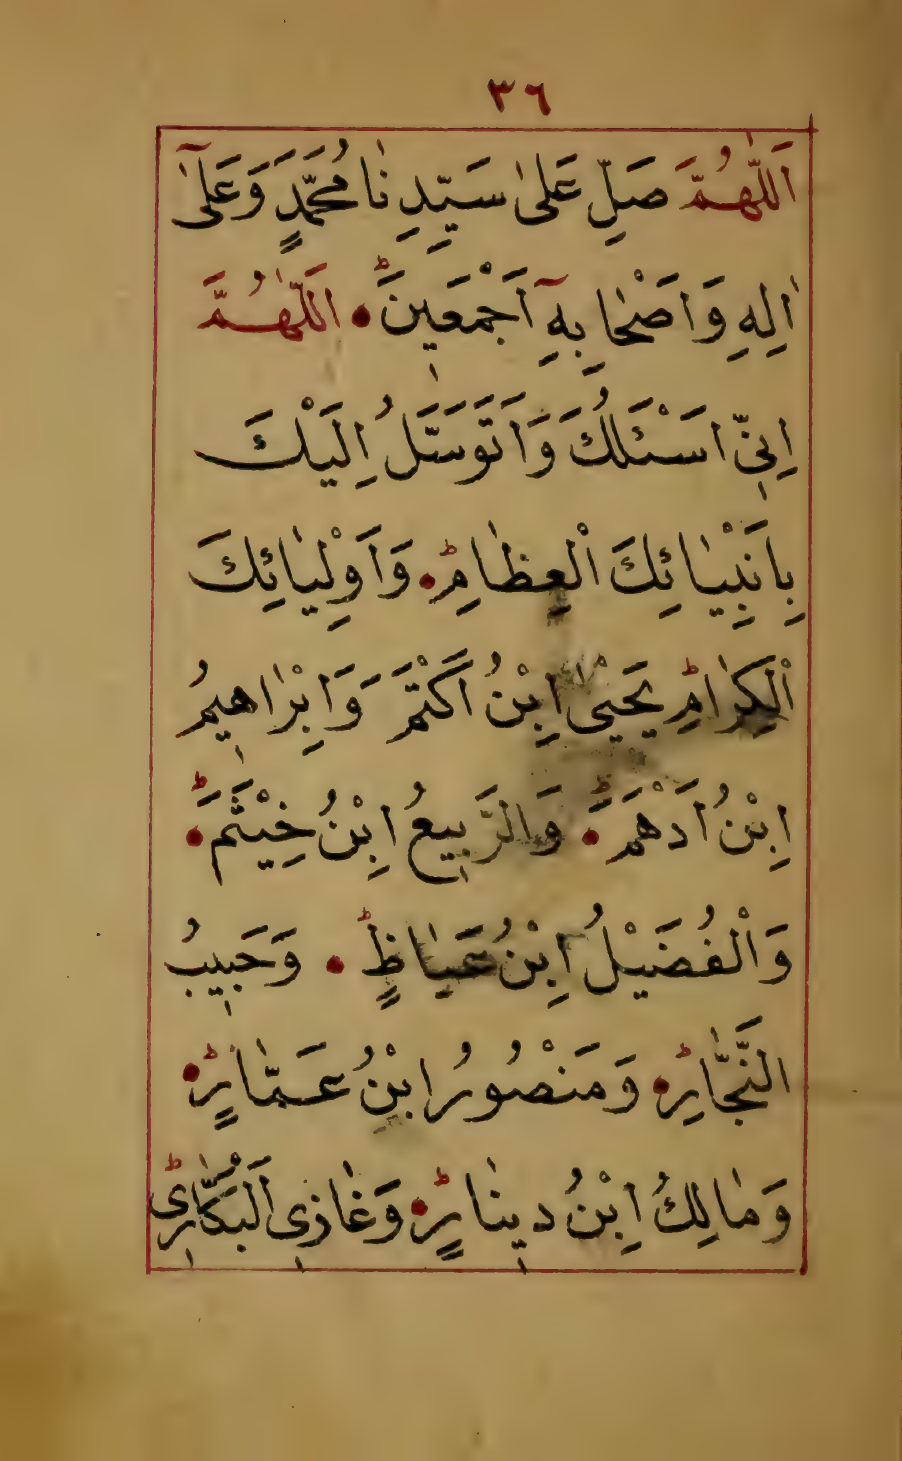 ٣٦
اَللّٰهُمَّ صَلِّ عَلٰى سَيِّدِنَا مُحَمَّدٍ وَعَلٰٓى
اٰلِهِ وَاَصْحَابِهِٓ اَجْمَعِينَ ط اَللّٰهُمَّ
اِنِّى اَسْئَلُكَ وَاَتَوَسَّلُ اِلَيْكَ
بِاَنْبِيَائِكَ الْعِظَامِ ط وَاَوْلِيَائِكَ
الْكِرَامِ ط يَحْيٰى اِبْنُ اَكْتَمَ وَاِبْرٰاهِيمُ
اِبْنُ اَدْهَمَ ط وَالرَّبِيعُ اِبْنُ خِيْثَمَ ط
وَالْفُضَيْلُ اِبْنُ عَيَاظٍ ط وَحَبِيبُ
النَّجَّارِ ط وَمَنْصُورُ ابْنُ عَمَّارٍ ط
وَمٰالِكُ اِبْنُ دِينَارٍ ط وَغٰازِى الْبَكَّارِى ط